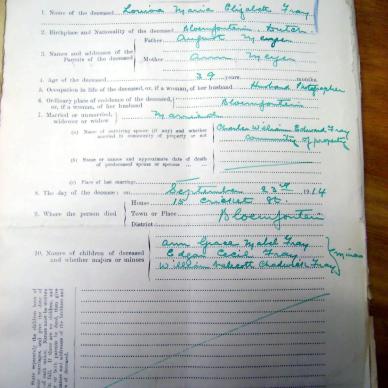 1. Name of the deceased Louisa Maria Elizabeth Fray
2. Birthplace and Nationality of the deceased Bloemfontein, Dutch
3. Names and addresses of the Parents of the deceased
Father August Meyer
Mother Anna Meyer
4. Age of the deceased 29 years months.
5. Occupation in life of the deceased, or, if a woman, of her husband Husband Photographer
6. Ordinary place of residence of the deceased, or, if a woman, of her husband Bloemfontein
7. Married or unmarried, widower or widow Married
(a) Name of surviving spouse (if any) and whether married in community of property or not Charles William Edward Fray
community of property
(b) Name or names and approximate date of death of predeceased spouse or spouses
(c) Place of last marriage
8. The day of the decease: on September 23rd 1914
9. Where the person died
House 15 Cricket St.
Town or Place Bloemfontein
District
10. Names of children of deceased and whether majors or minors
Ann Grace Mabel Fray
Edgar Cecil Fray
William Chadwick Fray
minors